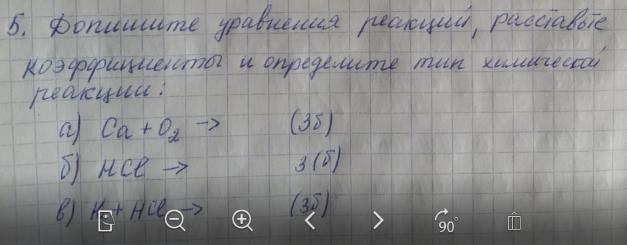 5. Допишите уравнения реакций, расставьте
коэффициенты и определите тип химической
реакции:
а) Ca + O₂ → (3б)
б) HCl → 3(б)
в) K + HCl → (3б)
90°